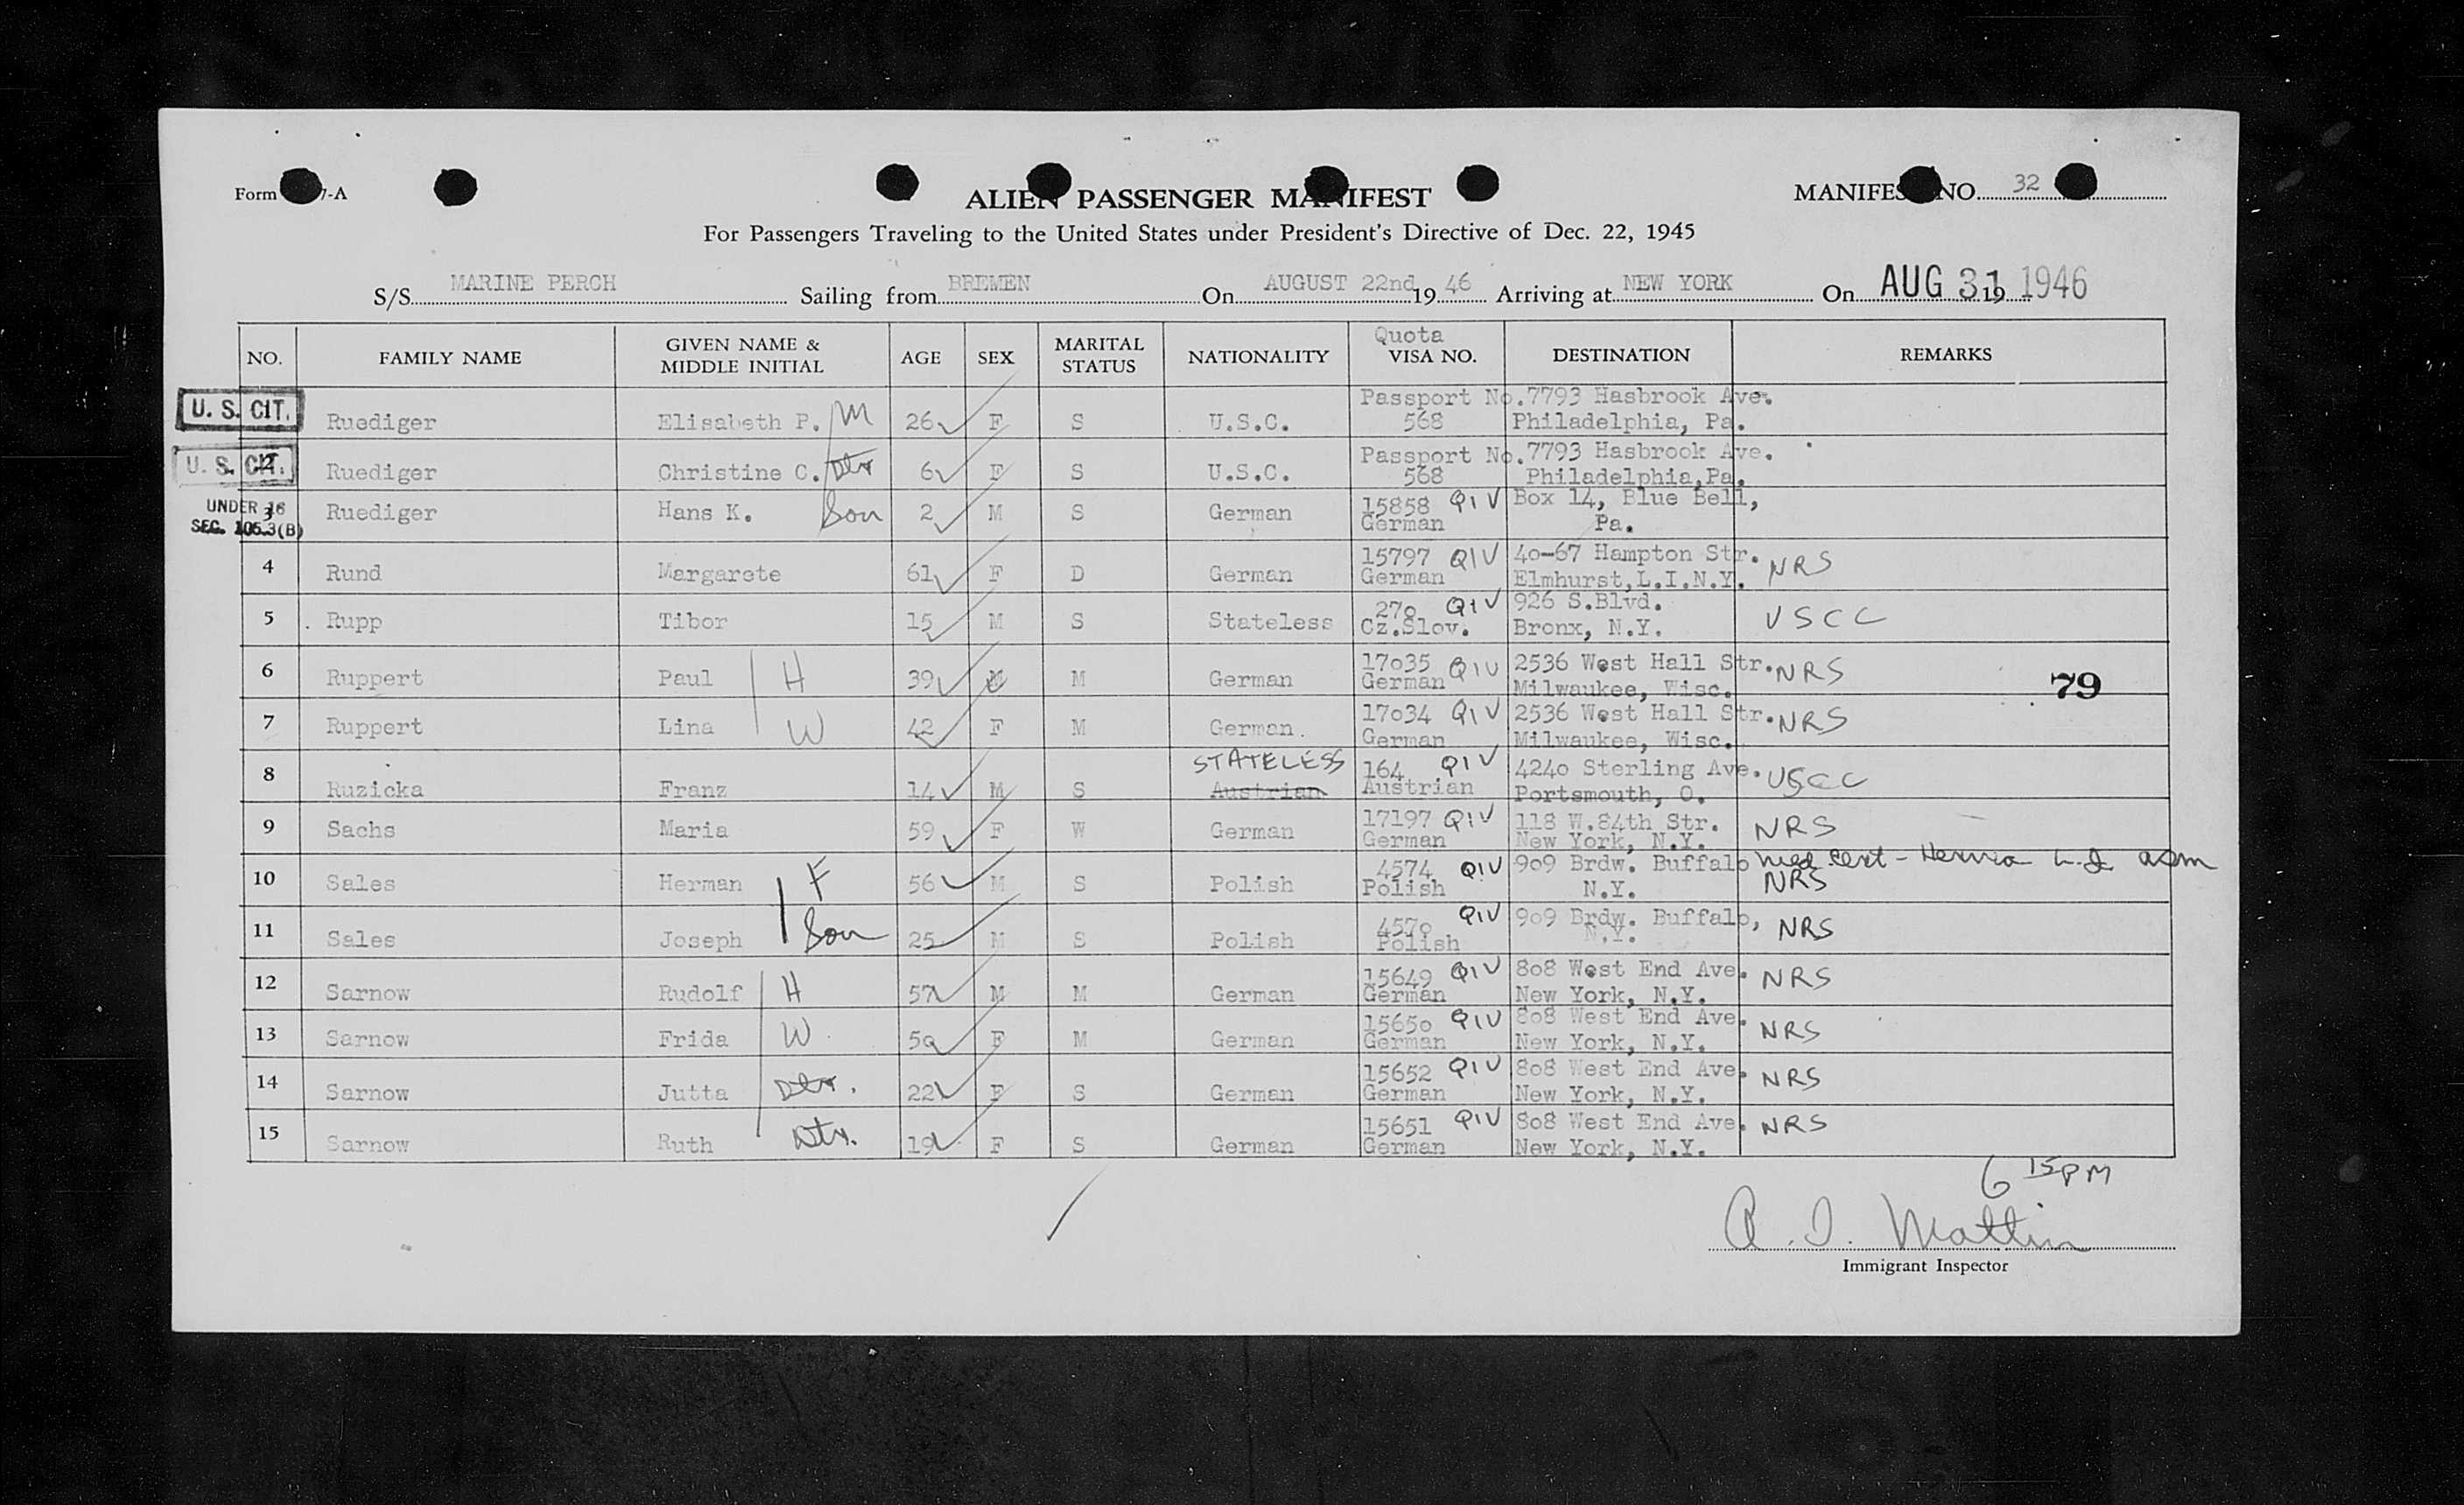 Form 7-A
ALIEN PASSENGER MANIFEST
MANIFEST NO. 32
For Passengers Traveling to the United States under President's Directive of Dec. 22, 1945
S/S MARINE PERCH Sailing from BREMEN On AUGUST 22nd 19 46 Arriving at NEW YORK On AUG 31 19 1946
NO. FAMILY NAME GIVEN NAME & MIDDLE INITIAL AGE SEX MARITAL STATUS NATIONALITY Quota VISA NO. DESTINATION REMARKS
U. S. CIT. Ruediger Elisabeth P. M 26 F S U.S.C. Passport No. 568 7793 Hasbrook Ave. Philadelphia, Pa.
U. S. CIT. 2 Ruediger Christine C. Dtr 6 F S U.S.C. Passport No. 568 7793 Hasbrook Ave. Philadelphia,Pa.
UNDER 16 SEC. 105.3(B) 3 Ruediger Hans K. Son 2 M S German 15858 QIV German Box 14, Blue Bell, Pa.
4 Rund Margarete 61 F D German 15797 QIV German 40-67 Hampton Str. Elmhurst,L.I.N.Y. NRS
5 Rupp Tibor 15 M S Stateless 270 QIV Cz.Slov. 926 S.Blvd. Bronx, N.Y. USCC
6 Ruppert Paul H 39 M M German 17035 QIV German 2536 West Hall Str. Milwaukee, Wisc. NRS
79
7 Ruppert Lina W 42 F M German. 17034 QIV German 2536 West Hall Str. Milwaukee, Wisc. NRS
8 Ruzicka Franz 14 M S STATELESS Austrian 164 QIV Austrian 4240 Sterling Ave. Portsmouth, O. USCC
9 Sachs Maria 59 F W German 17197 QIV German 118 W.84th Str. New York, N.Y. NRS
10 Sales Herman F 56 M S Polish 4574 QIV Polish 909 Brdw. Buffalo N.Y. med cert - Hernia NRS
11 Sales Joseph Son 25 M S Polish 4570 QIV Polish 909 Brdw. Buffalo, N.Y. NRS
12 Sarnow Rudolf H 57 M M German 15649 QIV German 808 West End Ave. New York, N.Y. NRS
13 Sarnow Frida W 50 F M German 15650 QIV German 808 West End Ave. New York, N.Y. NRS
14 Sarnow Jutta Dtr. 22 F S German 15652 QIV German 808 West End Ave. New York, N.Y. NRS
15 Sarnow Ruth Dtr. 19 F S German 15651 QIV German 808 West End Ave. New York, N.Y. NRS
6 15 PM
Immigrant Inspector